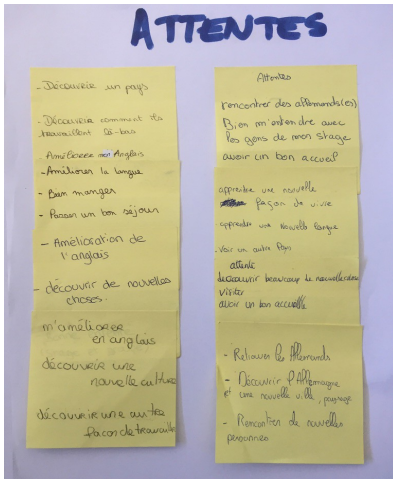 ATTENTES
- Découvrir un pays
- Découvrir comment ils
travaillent là-bas
Améliorer mon Anglais
- Améliorer la langue
- Bien manger
- Passer un bon séjour
- Amélioration de
l'anglais
- découvrir de nouvelles
choses.
m'améliorer
en anglais
découvrir une
nouvelle culture
découvrir une autre
façon de travaille
Attentes
rencontrer des allemands(es)
Bien m'entendre avec
les gens de mon stage
avoir un bon accueil
apprendre une nouvelle
façon de vivre
apprendre une nouvelle langue
- Voir un autre Pays
attente
découvrir beaucoup de nouvelle
visiter
avoir un bon accueille
- les Allemands
- Découvrir l'Allemagne
et une nouvelle ville, paysage
- Rencontrer de nouvelles
personnes